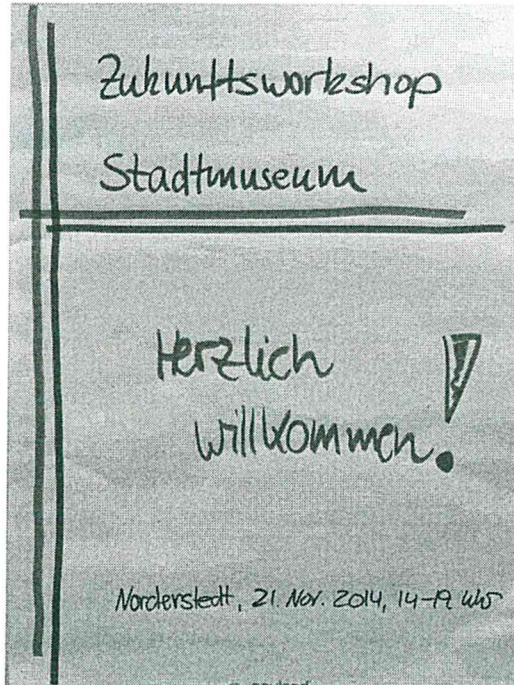 Zukunftsworkshop
Stadtmuseum
Herzlich
willkommen!
Norderstedt, 21. Nov. 2014, 14-19 Uhr